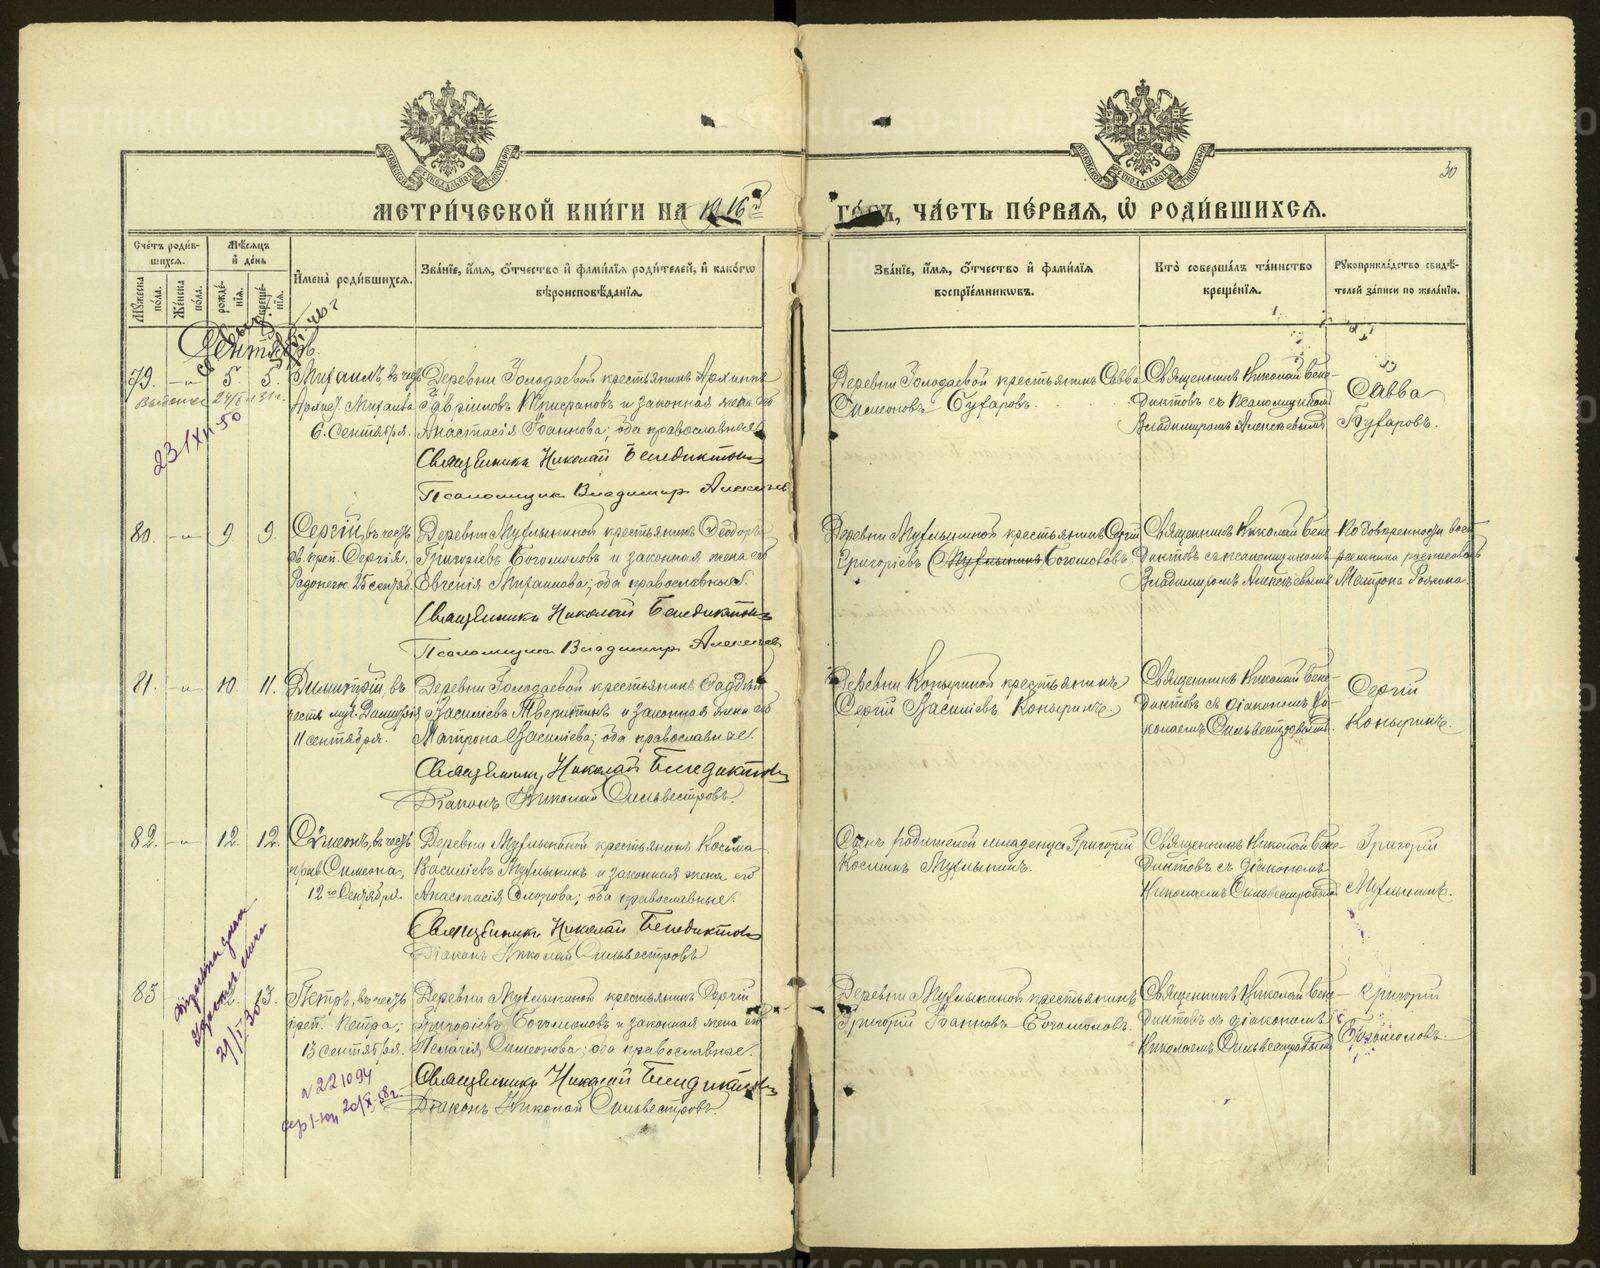 30
МЕТРИ́ЧЕСКОЙ КНИ́ГИ НА 1916 й
ГО́ДЪ, ЧА́СТЬ ПЕ́РВАЯ, Ѡ҆ РОДИ́ВШИХСЯ.
Сче́тъ роди́в-
шихся.
Мѣ́сяцъ
и҆ де́нь
Му́жеска
по́ла.
Же́нска
по́ла.
рожде́-
нїя.
креще́-
нїя.
И҆мена̀ роди́вшихся.
Зва́нїе, и҆́мя, ѻ҆́тчество и҆ фами́лїя роди́телей, и҆ како́гѡ
вѣроисповѣ́данїя.
Зва́нїе, и҆́мя, ѻ҆́тчество и҆ фами́лїя
воспрїе́мниковъ.
Кто̀ соверша́лъ та́инство
креще́нїя.
Рꙋкоприкла́дство свидѣ́-
телей за́писи по жела́нїю.
Сентябрь.
79. 5 5. Михаилъ, въ честь
Михаила
6. Сентября.
Деревни Голодаевой крестьянинъ
Гаврииловъ и законная жена его
Анастасія Іоаннова; оба православные
Священникъ Николай Бенедиктовъ
Псаломщикъ Владимиръ Алексѣевъ
Деревни Голодаевой крестьянинъ Савва
Симеоновъ Бухаровъ.
Священникъ Николай Бене-
диктовъ съ псаломщикомъ
Владимиромъ Алексѣевымъ
Савва
Бухаровъ.
23/XII-50
80. 9 9. Сергій, въ честь
св. преп. Сергія,
Радонеж. 25 сентяб.
Деревни Мухлыниной крестьянинъ Ѳеодоръ
Григоріевъ Богомоловъ и законная жена его
Евгенія Михаилова; оба православные.
Священникъ Николай Бенедиктовъ
Псаломщикъ Владимиръ Алексѣевъ
Деревни Мухлыниной крестьянинъ Сергій
Григоріевъ Мухлынинъ Богомоловъ.
Священникъ Николай Бене-
диктовъ съ псаломщикомъ
Владимиромъ Алексѣевымъ
По довѣренности восп-
ріемника расписалась
Матрона
81. 10. 11. Димитрій, въ
честь муч. Димитрія
11 сентября.
Деревни Голодаевой крестьянинъ Ѳаддей
Василіевъ и законная жена его
Матрона Василіева; оба православные.
Священникъ Николай Бенедиктовъ
Діаконъ Николай Сильвестровъ.
Деревни Копыриной крестьянинъ
Сергій Василіевъ Копыринъ.
Священникъ Николай Бене-
диктовъ съ діакономъ Ни-
колаемъ Сильвестровымъ
Сергій
Копыринъ.
82. 12. 12. Сѵмеонъ, въ честь
прав. Симеона,
12го Сентября.
Деревни Мухлыниной крестьянинъ Косьма
Василіевъ Мухлынинъ и законная жена его
Анастасія; оба православные.
Священникъ Николай Бенедиктовъ
Діаконъ Николай Сильвестровъ
Сынъ родителей младенца Григорій
Косминъ Мухлынинъ.
Священникъ Николай Бене-
диктовъ съ діакономъ
Николаемъ Сильвестровымъ
Григорій
Мухлынинъ.
83 13. Петръ, въ честь
преп. Петра,
13 сентября.
Деревни Мухлыниной крестьянинъ Сергій
Григоріевъ Богомоловъ и законная жена его
Пелагія Симеонова; оба православные.
Священникъ Николай Бенедиктовъ
Діаконъ Николай Сильвестровъ.
Деревни Мухлыниной крестьянинъ
Григорій Іоанновъ Богомоловъ.
Священникъ Николай Бене-
диктовъ съ діакономъ
Николаемъ Сильвестровымъ
Григорій
Богомоловъ.
METRIKI.GASO-URAL.RU